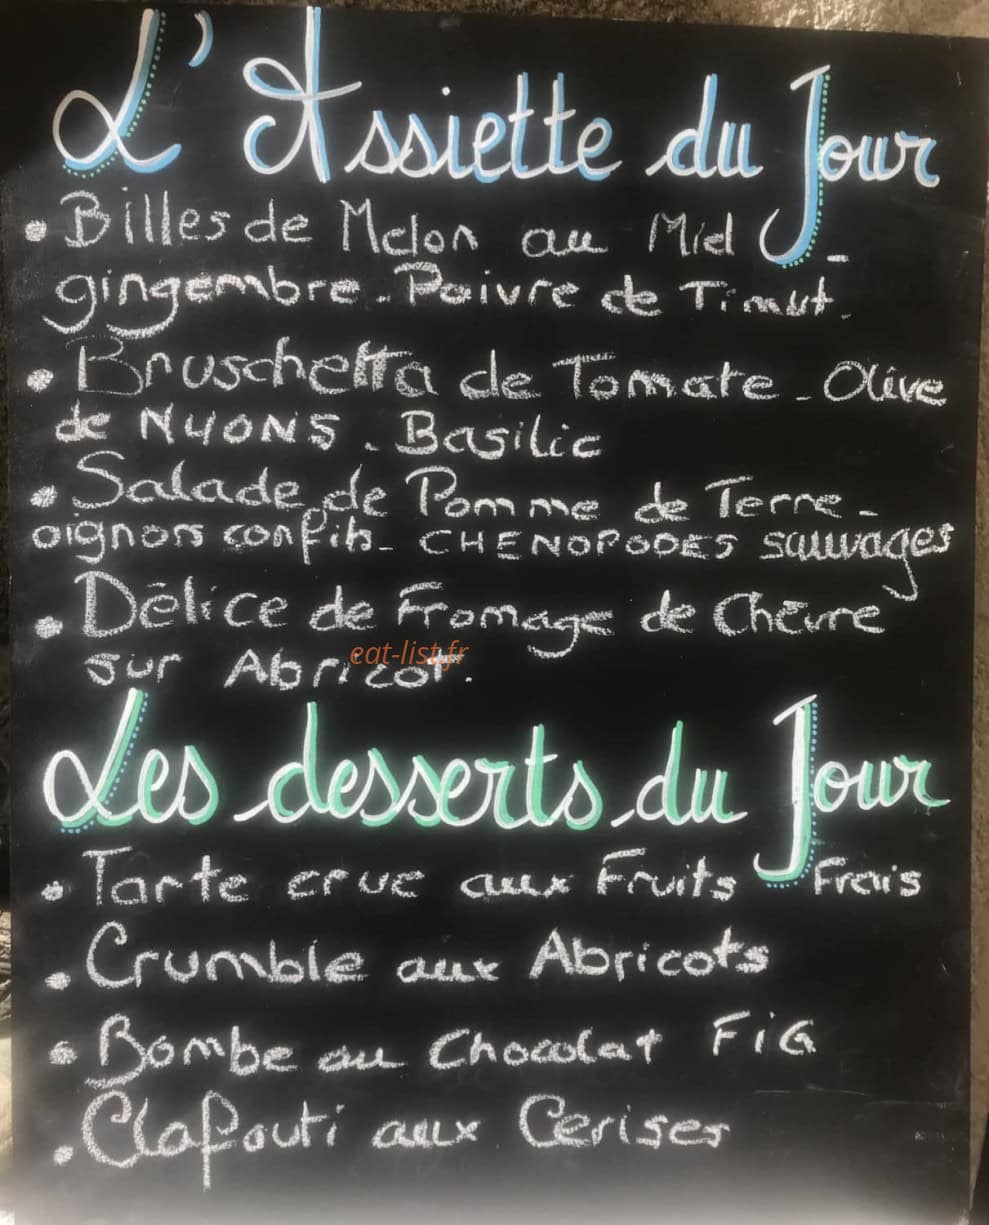 L'Assiette du Jour
• Billes de Melon au Miel -
gingembre - Poivre de Timut.
• Bruschetta de Tomate - Olive
de NYONS - Basilic
• Salade de Pomme de Terre -
oignons confits - CHENOPODES sauvages
• Délice de Fromage de Chèvre
sur Abricot.
eat-list.fr
Les desserts du Jour
• Tarte crue aux Fruits Frais
• Crumble aux Abricots
• Bombe au Chocolat FiG
• Clafouti aux Cerises